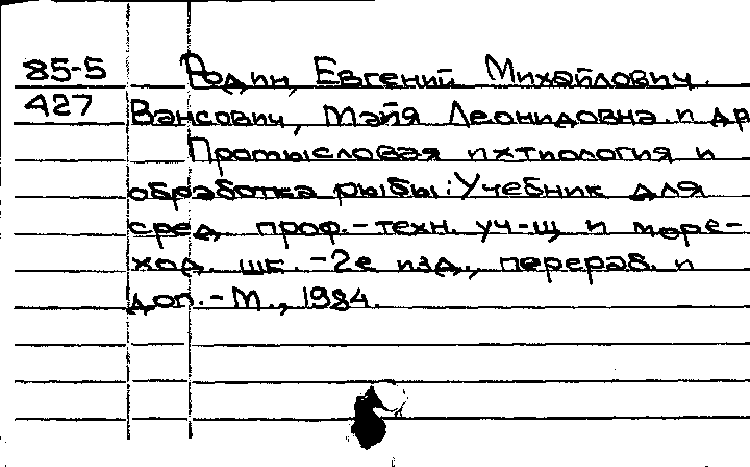 85-5 Родин, Евгений Михайлович.
427 Вансович, Майя Леонидовна и др
Промысловая ихтиология и
обработка рыбы: Учебник для
сред. проф.-техн. уч-щ и море-
ход. шк. -2е изд., перераб. и
доп.-М., 1984.